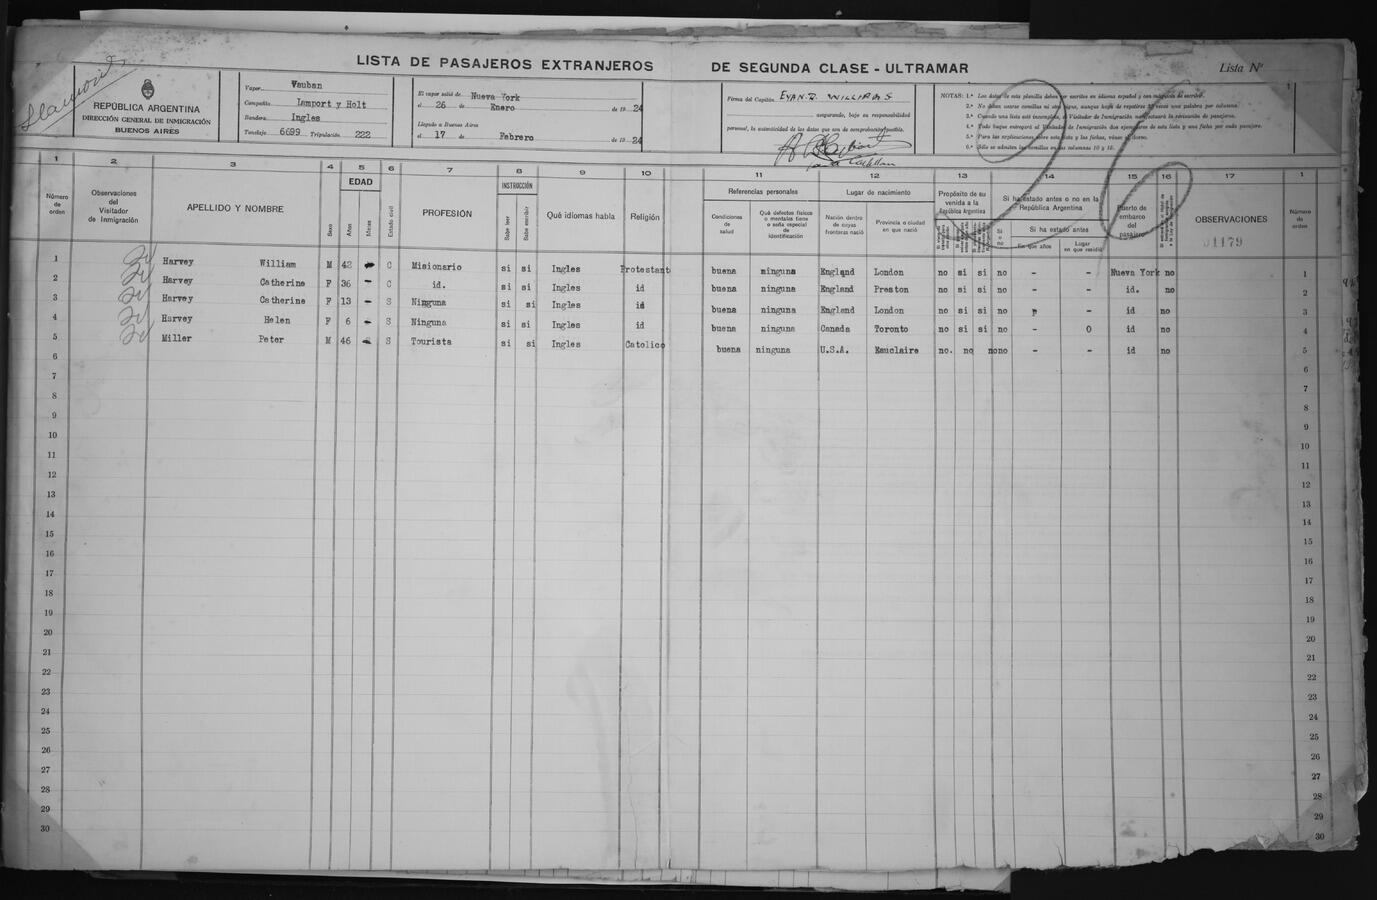 LISTA DE PASAJEROS EXTRANJEROS DE SEGUNDA CLASE - ULTRAMAR Lista Nº
REPÚBLICA ARGENTINA
DIRECCIÓN GENERAL DE INMIGRACIÓN
BUENOS AIRES
Vapor Vauban
Compañía Lamport y Holt
Bandera Ingles
Tonelaje 6699 Tripulación 222
El vapor salió de Nueva York
el 26 de Enero de 19 24
Llegado a Buenos Aires
el 17 de Febrero de 19 24
Firma del Capitán EVAN.D. WILLIAMS
asegurando, bajo su responsabilidad
personal, la autenticidad de los datos que son de comprobación posible.
NOTAS: 1.ª Los datos de esta planilla deben ser escritos en idioma español y con máquina de escribir.
2.ª No deben usarse comillas ni otro signo, aunque haya de repetirse 20 veces una palabra por columna.
3.ª Cuando una lista esté incompleta, el Visitador de Inmigración efectuará la revisación de pasajeros.
4.ª Todo buque entregará al Visitador de Inmigración dos ejemplares de esta lista y una ficha por cada pasajero.
5.ª Para las explicaciones sobre esta lista y las fichas, véase al dorso.
6.ª Sólo se admiten las comillas en las columnas 10 y 15.
1 2 3 4 5 6 7 8 9 10 11 12 13 14 15 16 17 1
Número de orden
Observaciones del Visitador de Inmigración
APELLIDO Y NOMBRE
Sexo
EDAD
Años
Meses
Estado civil
PROFESIÓN
INSTRUCCIÓN
Sabe leer
Sabe escribir
Qué idiomas habla
Religión
Referencias personales
Condiciones de salud
Qué defectos físicos o mentales tiene o seña especial de identificación
Lugar de nacimiento
Nación dentro de cuyas fronteras nació
Provincia o ciudad en que nació
Propósito de su venida a la República Argentina
Si ha estado antes o no en la República Argentina
Si o no
Si ha estado antes
En que años
Lugar en que residió
Puerto de embarco del pasajero
OBSERVACIONES
01179
Número de orden
1 Harvey William M 42 - C Misionario si si Ingles Protestant buena ninguna England London no si si no - - Nueva York no 1
2 Harvey Catherine F 36 - C id. si si Ingles id buena ninguna England Preston no si si no - - id. no 2
3 Harvey Catherine F 13 - S Ninguna si si Ingles id buena ninguna England London no si si no - id no 3
4 Harvey Helen F 6 - S Ninguna si si Ingles id buena ninguna Canada Toronto no si si no - 0 id no 4
5 Miller Peter M 46 - S Tourista si si Ingles Catolico buena ninguna U.S.A. Eauclaire no. no nono - - id no 5
6 6
7 7
8 8
9 9
10 10
11 11
12 12
13 13
14 14
15 15
16 16
17 17
18 18
19 19
20 20
21 21
22 22
23 23
24 24
25 25
26 26
27 27
28 28
29 29
30 30